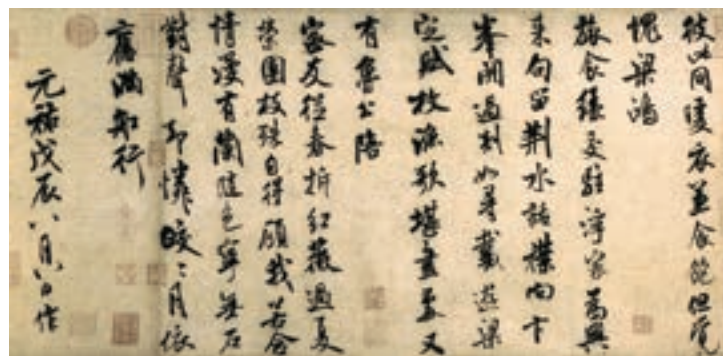 彼此同暖衣兼食飽但覺
愧梁鴻
旅食緣交駐浮家為興
來句留荆水話襟向卞
峯開過剡如尋戴遊梁
定賦枚漁歌堪畫處又
有魯公陪
密友從春拆紅薇過夏
榮團枝殊自得顧我若含
情漫有蘭隨色寧無石
對聲却憐皎々月依
舊滿船行
元祐戊辰八月八日作